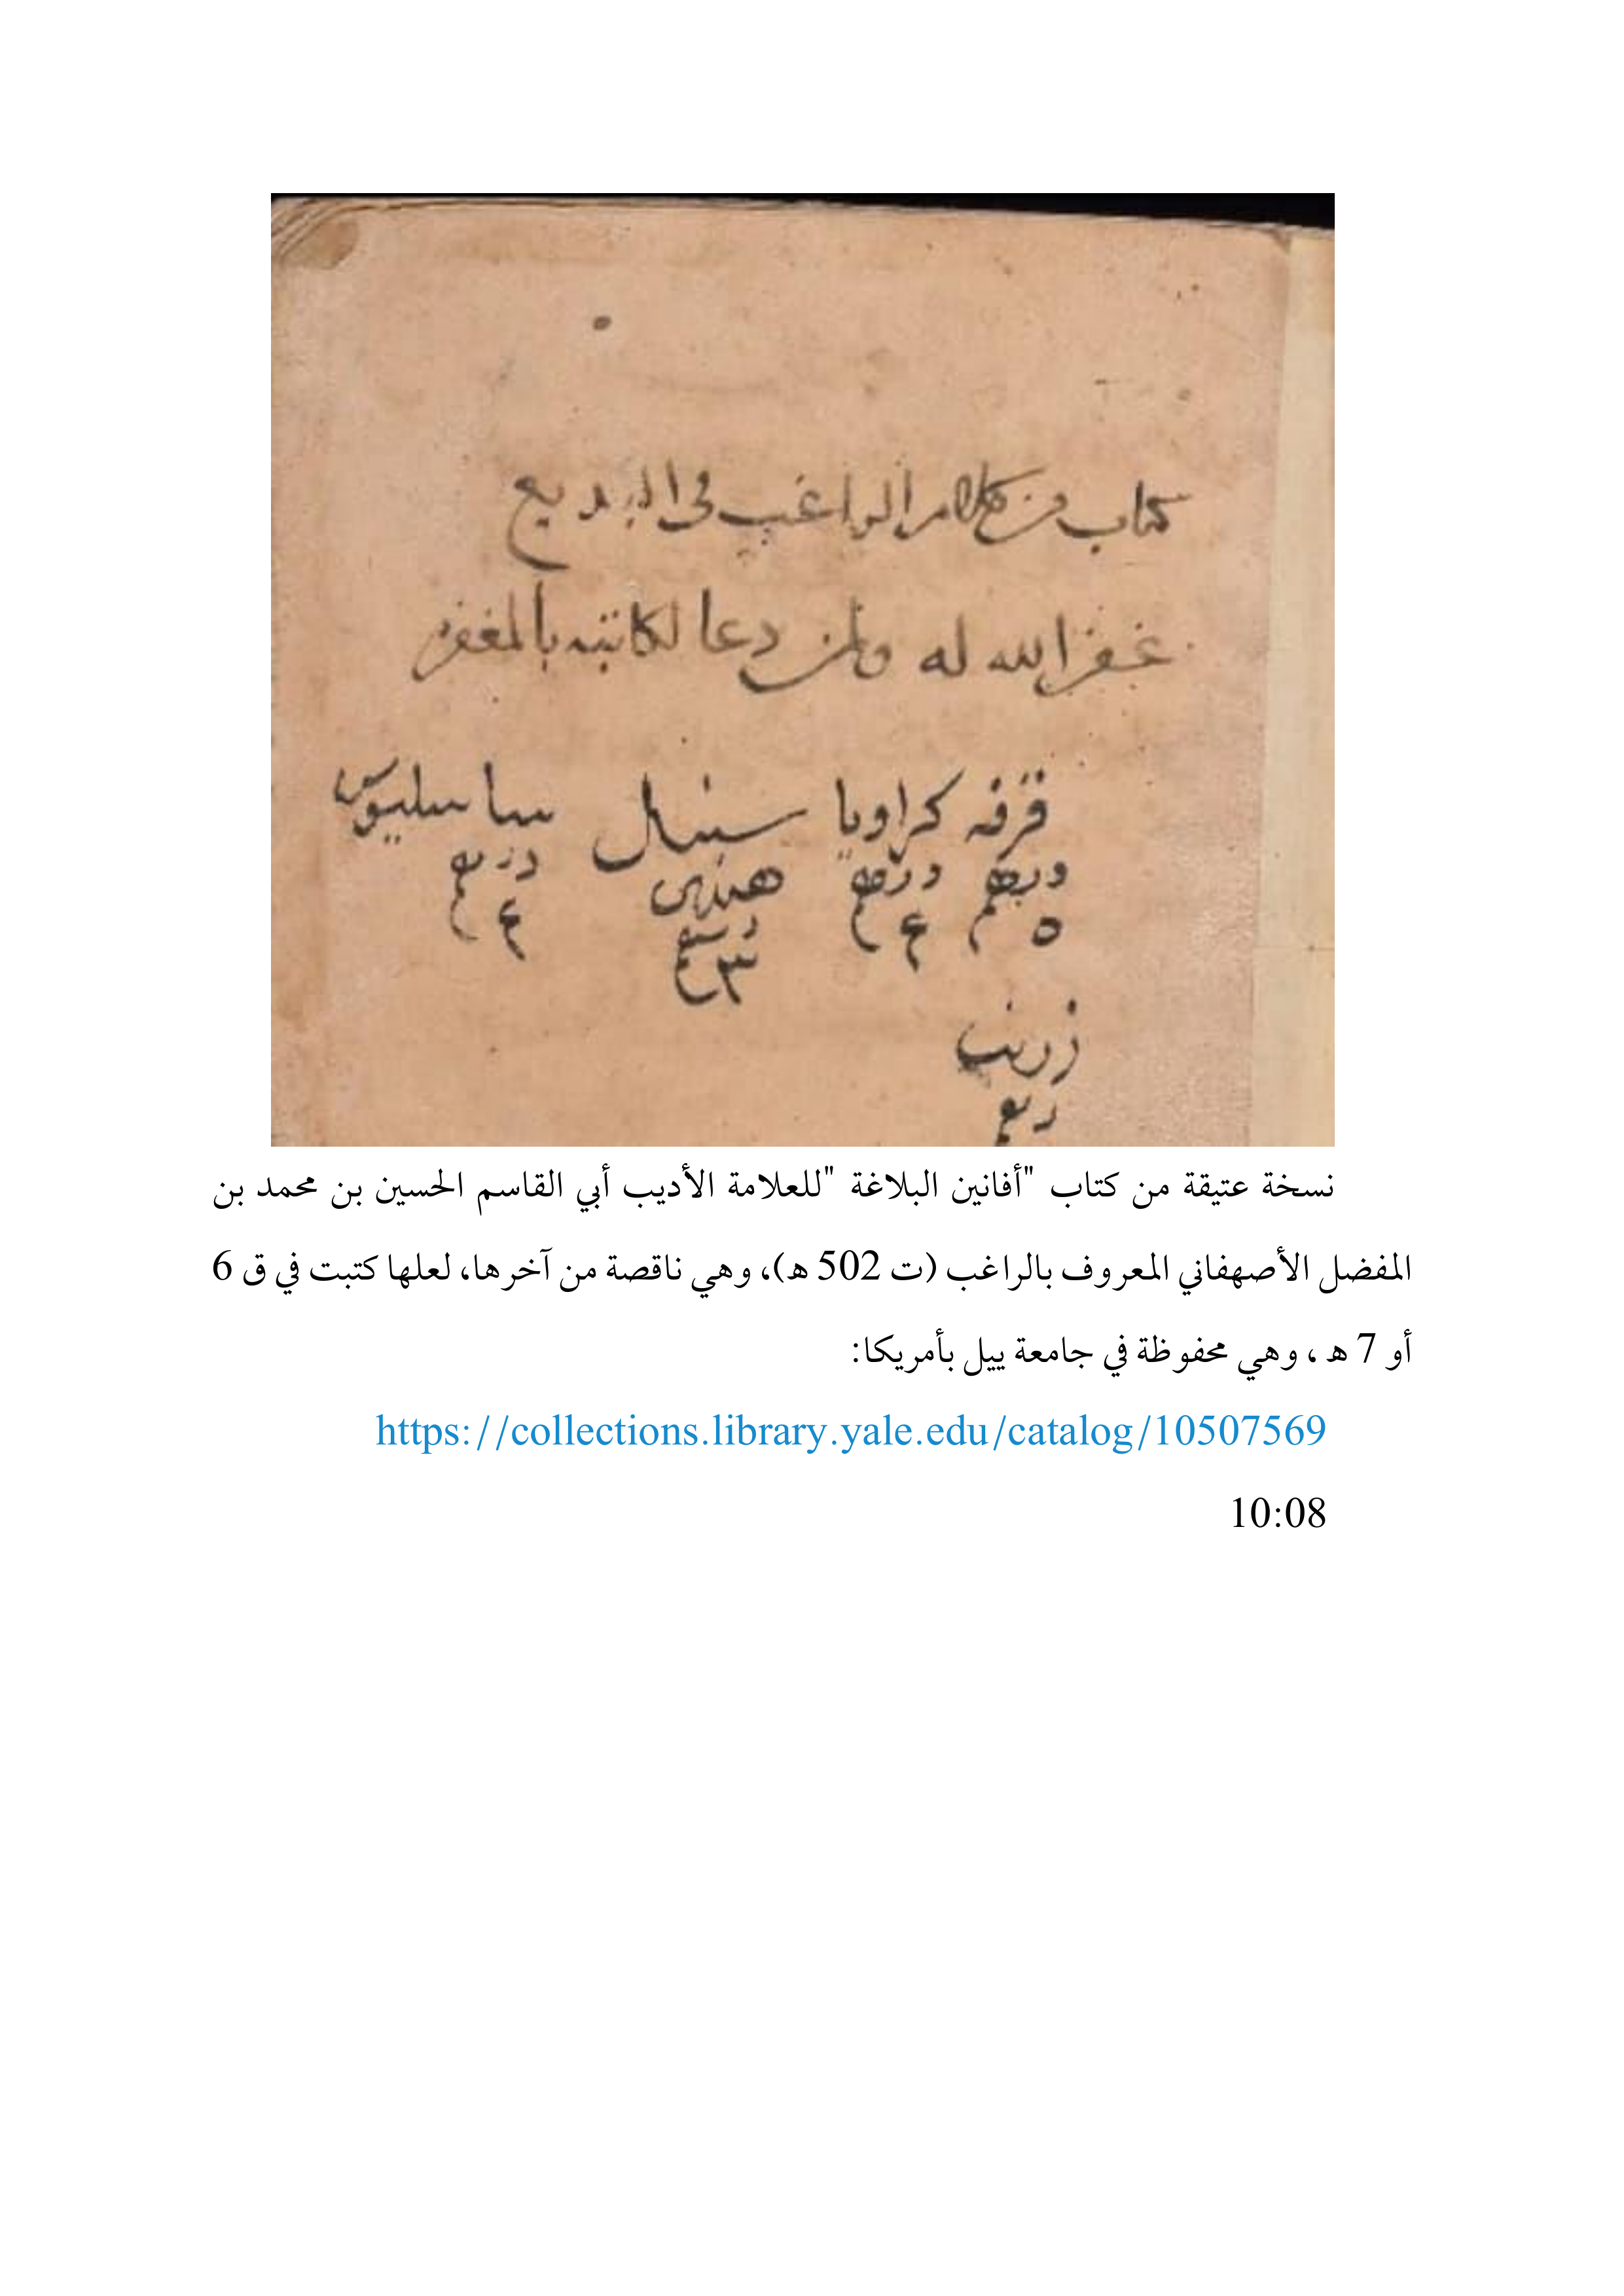 كتاب من كلام الراغب في البديع
غفر الله له ولمن دعا لكاتبه بالمغفره
قرفه كراويا سنبل ساساليوس
درهم درهم هندي درهم
٥ ٤ درهم ٤
٣
زرنب
درهم
نسخة عتيقة من كتاب "أفانين البلاغة "للعلامة الأديب أبي القاسم الحسين بن محمد بن
المفضل الأصهفاني المعروف بالراغب (ت 502 ه)، وهي ناقصة من آخرها، لعلها كتبت في ق 6
أو 7 ه ، وهي محفوظة في جامعة ييل بأمريكا:
https://collections.library.yale.edu/catalog/10507569
10:08